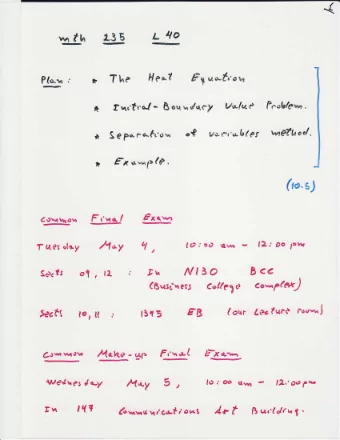 mth 235 L 40
Plan: * The Heat Equation
* Initial-Boundary Value Problem.
* Separation of variables method.
* Example.
(10.5)
Common Final Exam
Tuesday May 4, 10:00 am - 12:00 pm
Sects 09, 12 : In N130 BCC
(Business College complex)
Sects 10, 11 : 1345 EB (our Lecture room)
Common Make-up Final Exam
Wednesday May 5, 10:00 am - 12:00 pm
In 147 Communications Art Building.